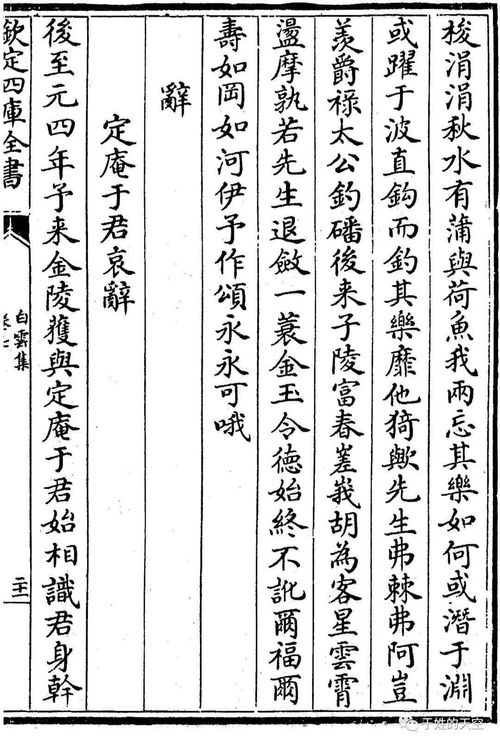 梭涓涓秋水有蒲與荷魚我兩忘其樂如何或潛于淵
或躍于波直鈎而釣其樂靡他猗歟先生弗棘弗阿豈
羡爵祿太公釣磻後来子陵富春嵳峩胡為客星雲霄
盪摩孰若先生退斂一蓑金玉令徳始終不訛爾福爾
壽如岡如河伊予作頌永永可哦
辭
定庵于君哀辭
後至元四年予来金陵獲與定庵于君始相識君身幹
欽定四庫全書
白雲集
卷七
二十一
于姓的天空